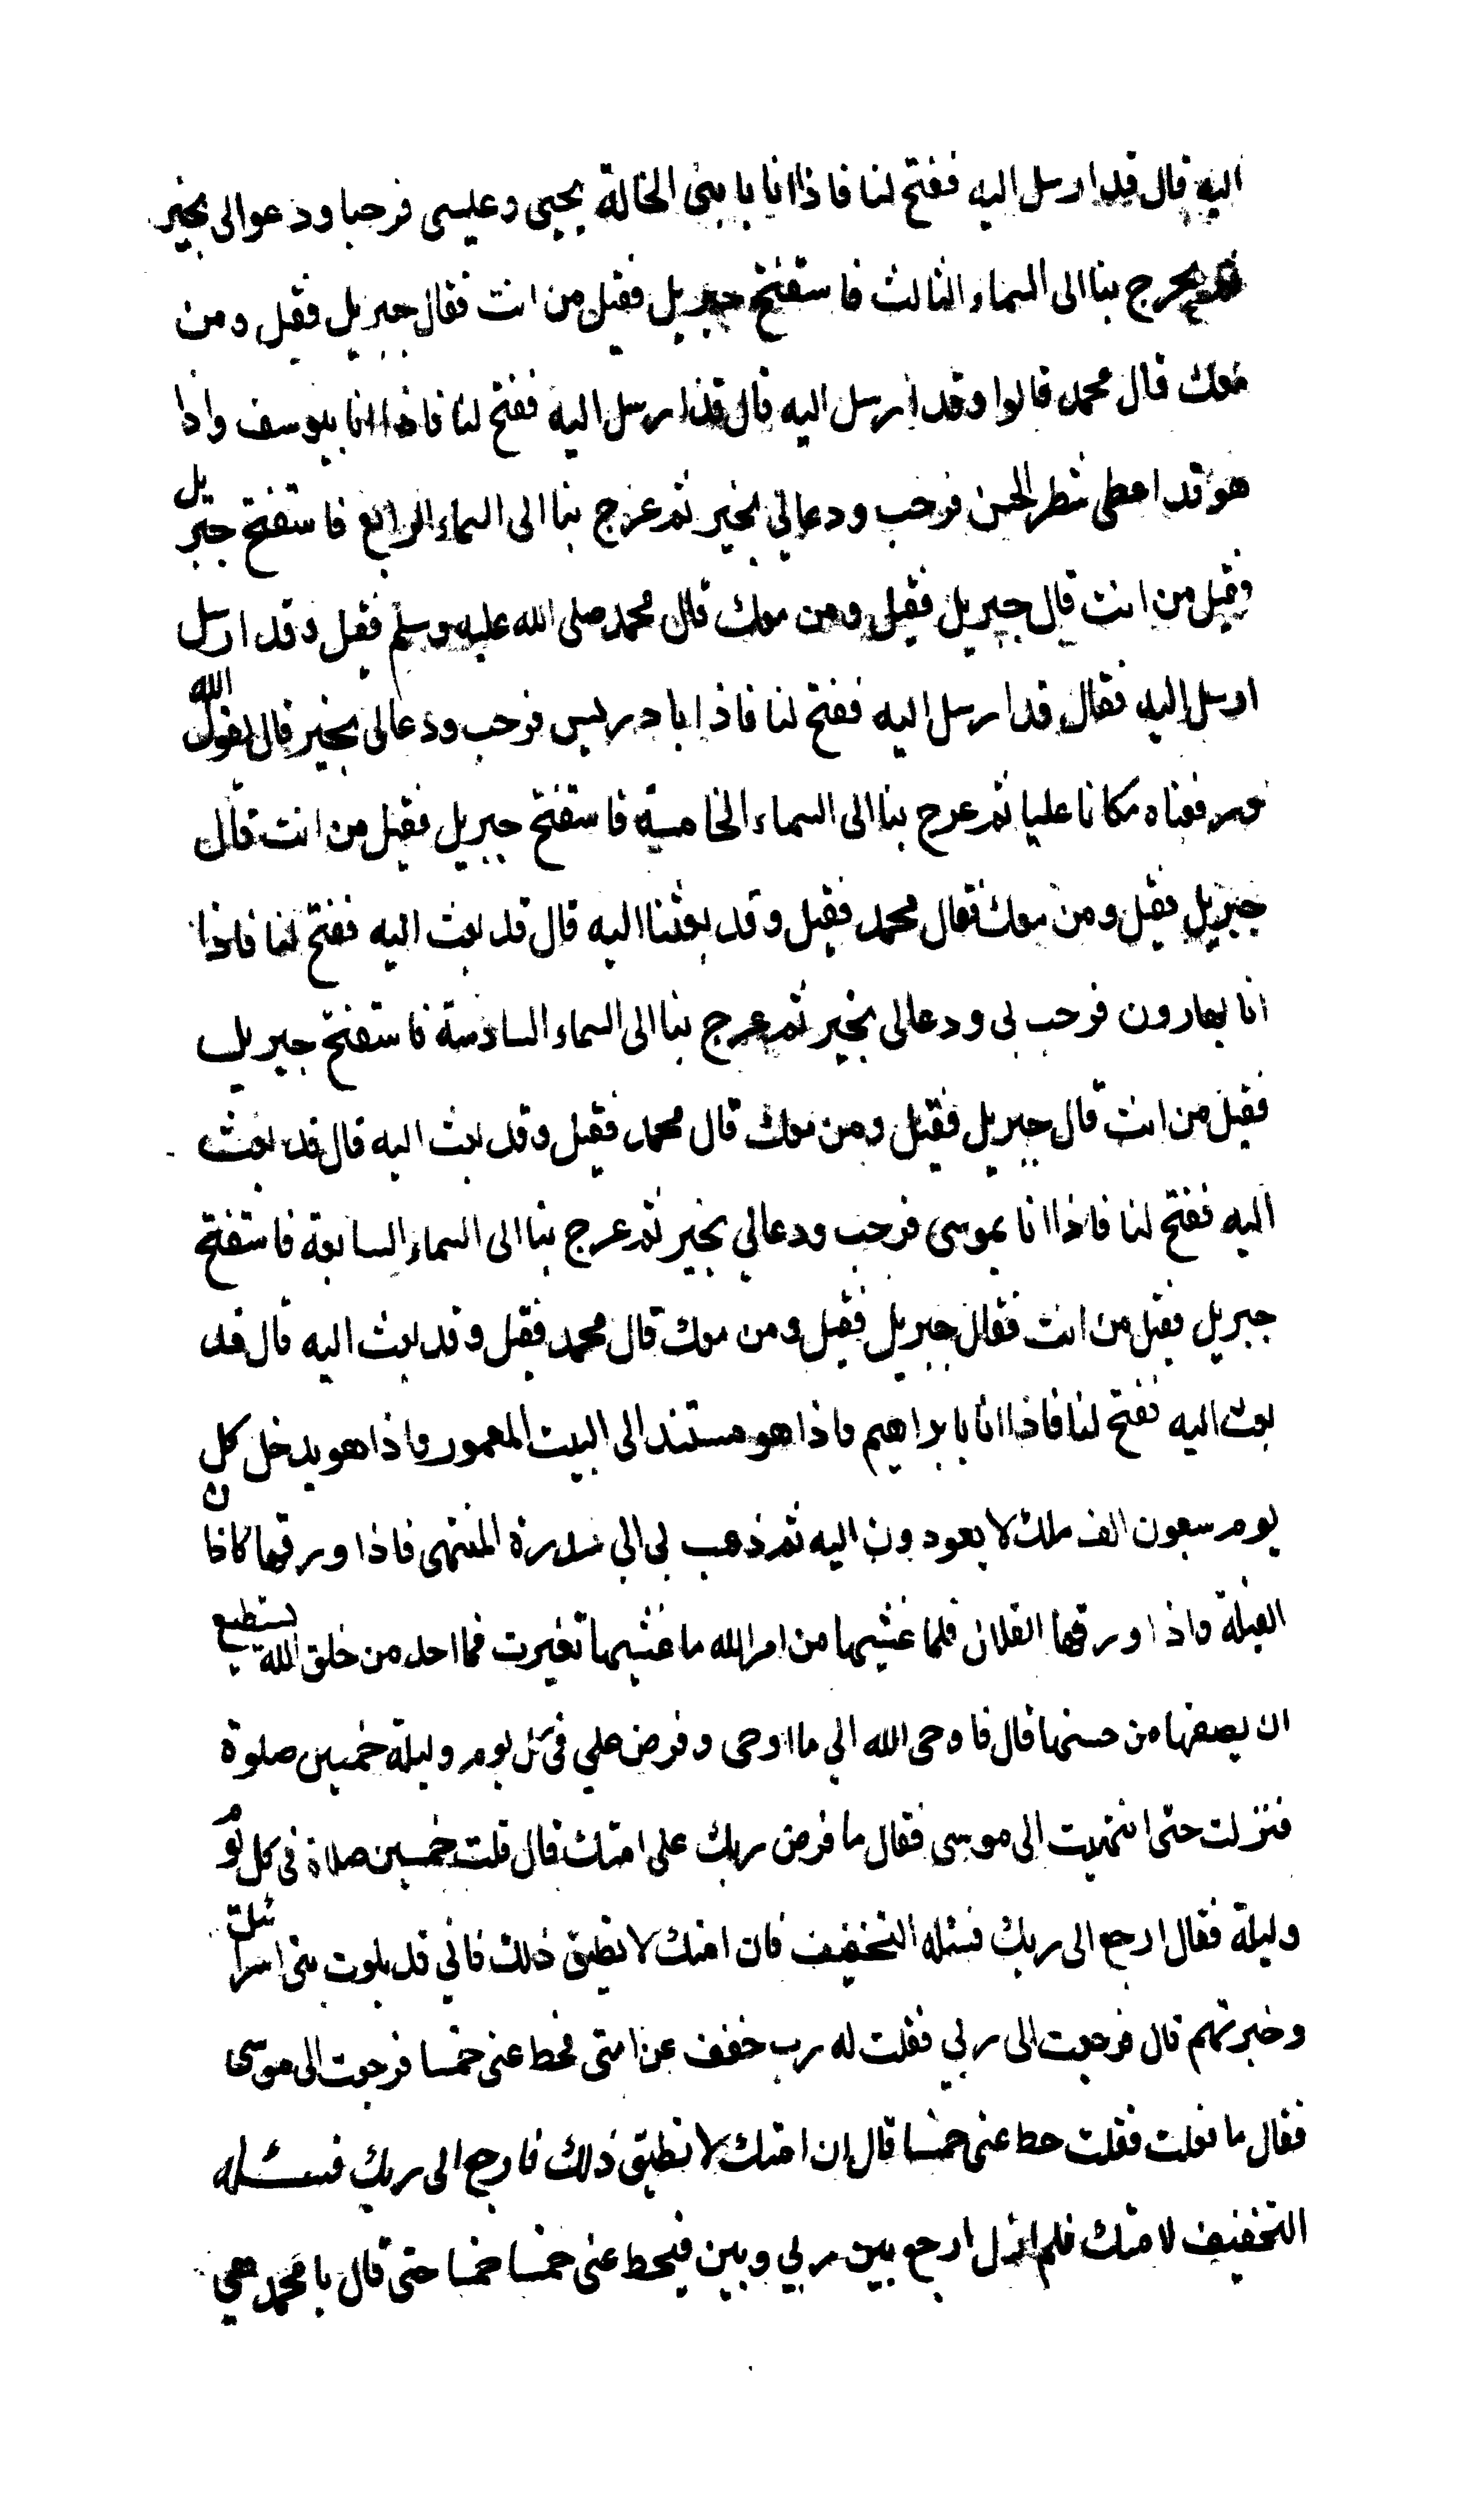 اليه قال قد ارسل اليه ففتح لنا فاذا انا بابنى الخالة يحيى وعليسى فرحبا ودعوا لى بخير
عرج بنا الى السماء الثالث فاستفتح جبريل فقيل من انت فقال جبريل فقيل ومن
معك قال محمد قالوا وقد ارسل اليه قال قد ارسل اليه ففتح لنا فاذا انا بيوسف واذا
هو قد اعطى شطر الحسن فرحب ودعا لي بخير ثم عرج بنا الى السماء الرابع فاستفتح جبريل
فقيل من انت قال جبريل فقيل ومن معك قال محمد صلى الله عليه وسلم فقيل وقد ارسل
ارسل اليه فقال قد ارسل اليه ففتح لنا فاذا بادريس فرحب ودعا لى بخير قال يقول الله
ورفعناه مكانا عليا ثم عرج بنا الى السماء الخامسة فاستفتح جبريل فقيل من انت قال
جبريل فقيل ومن معك فقال محمد فقيل وقد بعثنا اليه قال قد بعث اليه ففتح لنا فاذا
انا بهارون فرحب لى ودعا لى بخير ثم عرج بنا الى السماء السادسة فاستفتح جبريل
فقيل من انت قال جبريل فقيل ومن معك قال محمد فقيل وقد بعث اليه قال قد بعث
اليه ففتح لنا فاذا انا بموسى فرحب ودعا لي بخير ثم عرج بنا الى السماء السابعة فاستفتح
جبريل فقيل من انت فقال جبريل فقيل ومن معك قال محمد فقيل وقد بعث اليه قال قد
بعث اليه ففتح لنا فاذا انا بابراهيم واذا هو مستند الى البيت المعمور واذا هو يدخل كل
يوم سبعون الف ملك لا يعودون اليه ثم ذهب بى الى سدرة المنتهى فاذا ورقها كاذان
الفيلة واذا ورقها القلان فلما غشيها من امر الله ما غشيها تغيرت فما احد من خلق الله يستطيع
ان يصفها من حسنها قال فاوحى الله الي ما اوحى وفرض علي في كل يوم وليلة خمسين صلوة
فنزلت حتى انتهيت الى موسى فقال ما فرض ربك على امتك قال قلت خمسين صلاة فى كل يوم
وليلة فقال ارجع الى ربك فسئله التخفيف فان امتك لا تطيق ذلك فاني قد بلوت بنى اسرائيل
وخبرتهم قال فرجعت الى ربي فقلت له رب خفف عن امتى فحط عنى خمسا فرجعت الى موسى
فقال ما فعلت فقلت حط عنى خمسا قال ان امتك لا تطيق ذلك فارجع الى ربك فسئله
التخفيف لامتك فلم ازل ارجع بين ربي وبين فيحط عنى خمسا خمسا حتى قال يا محمد هي